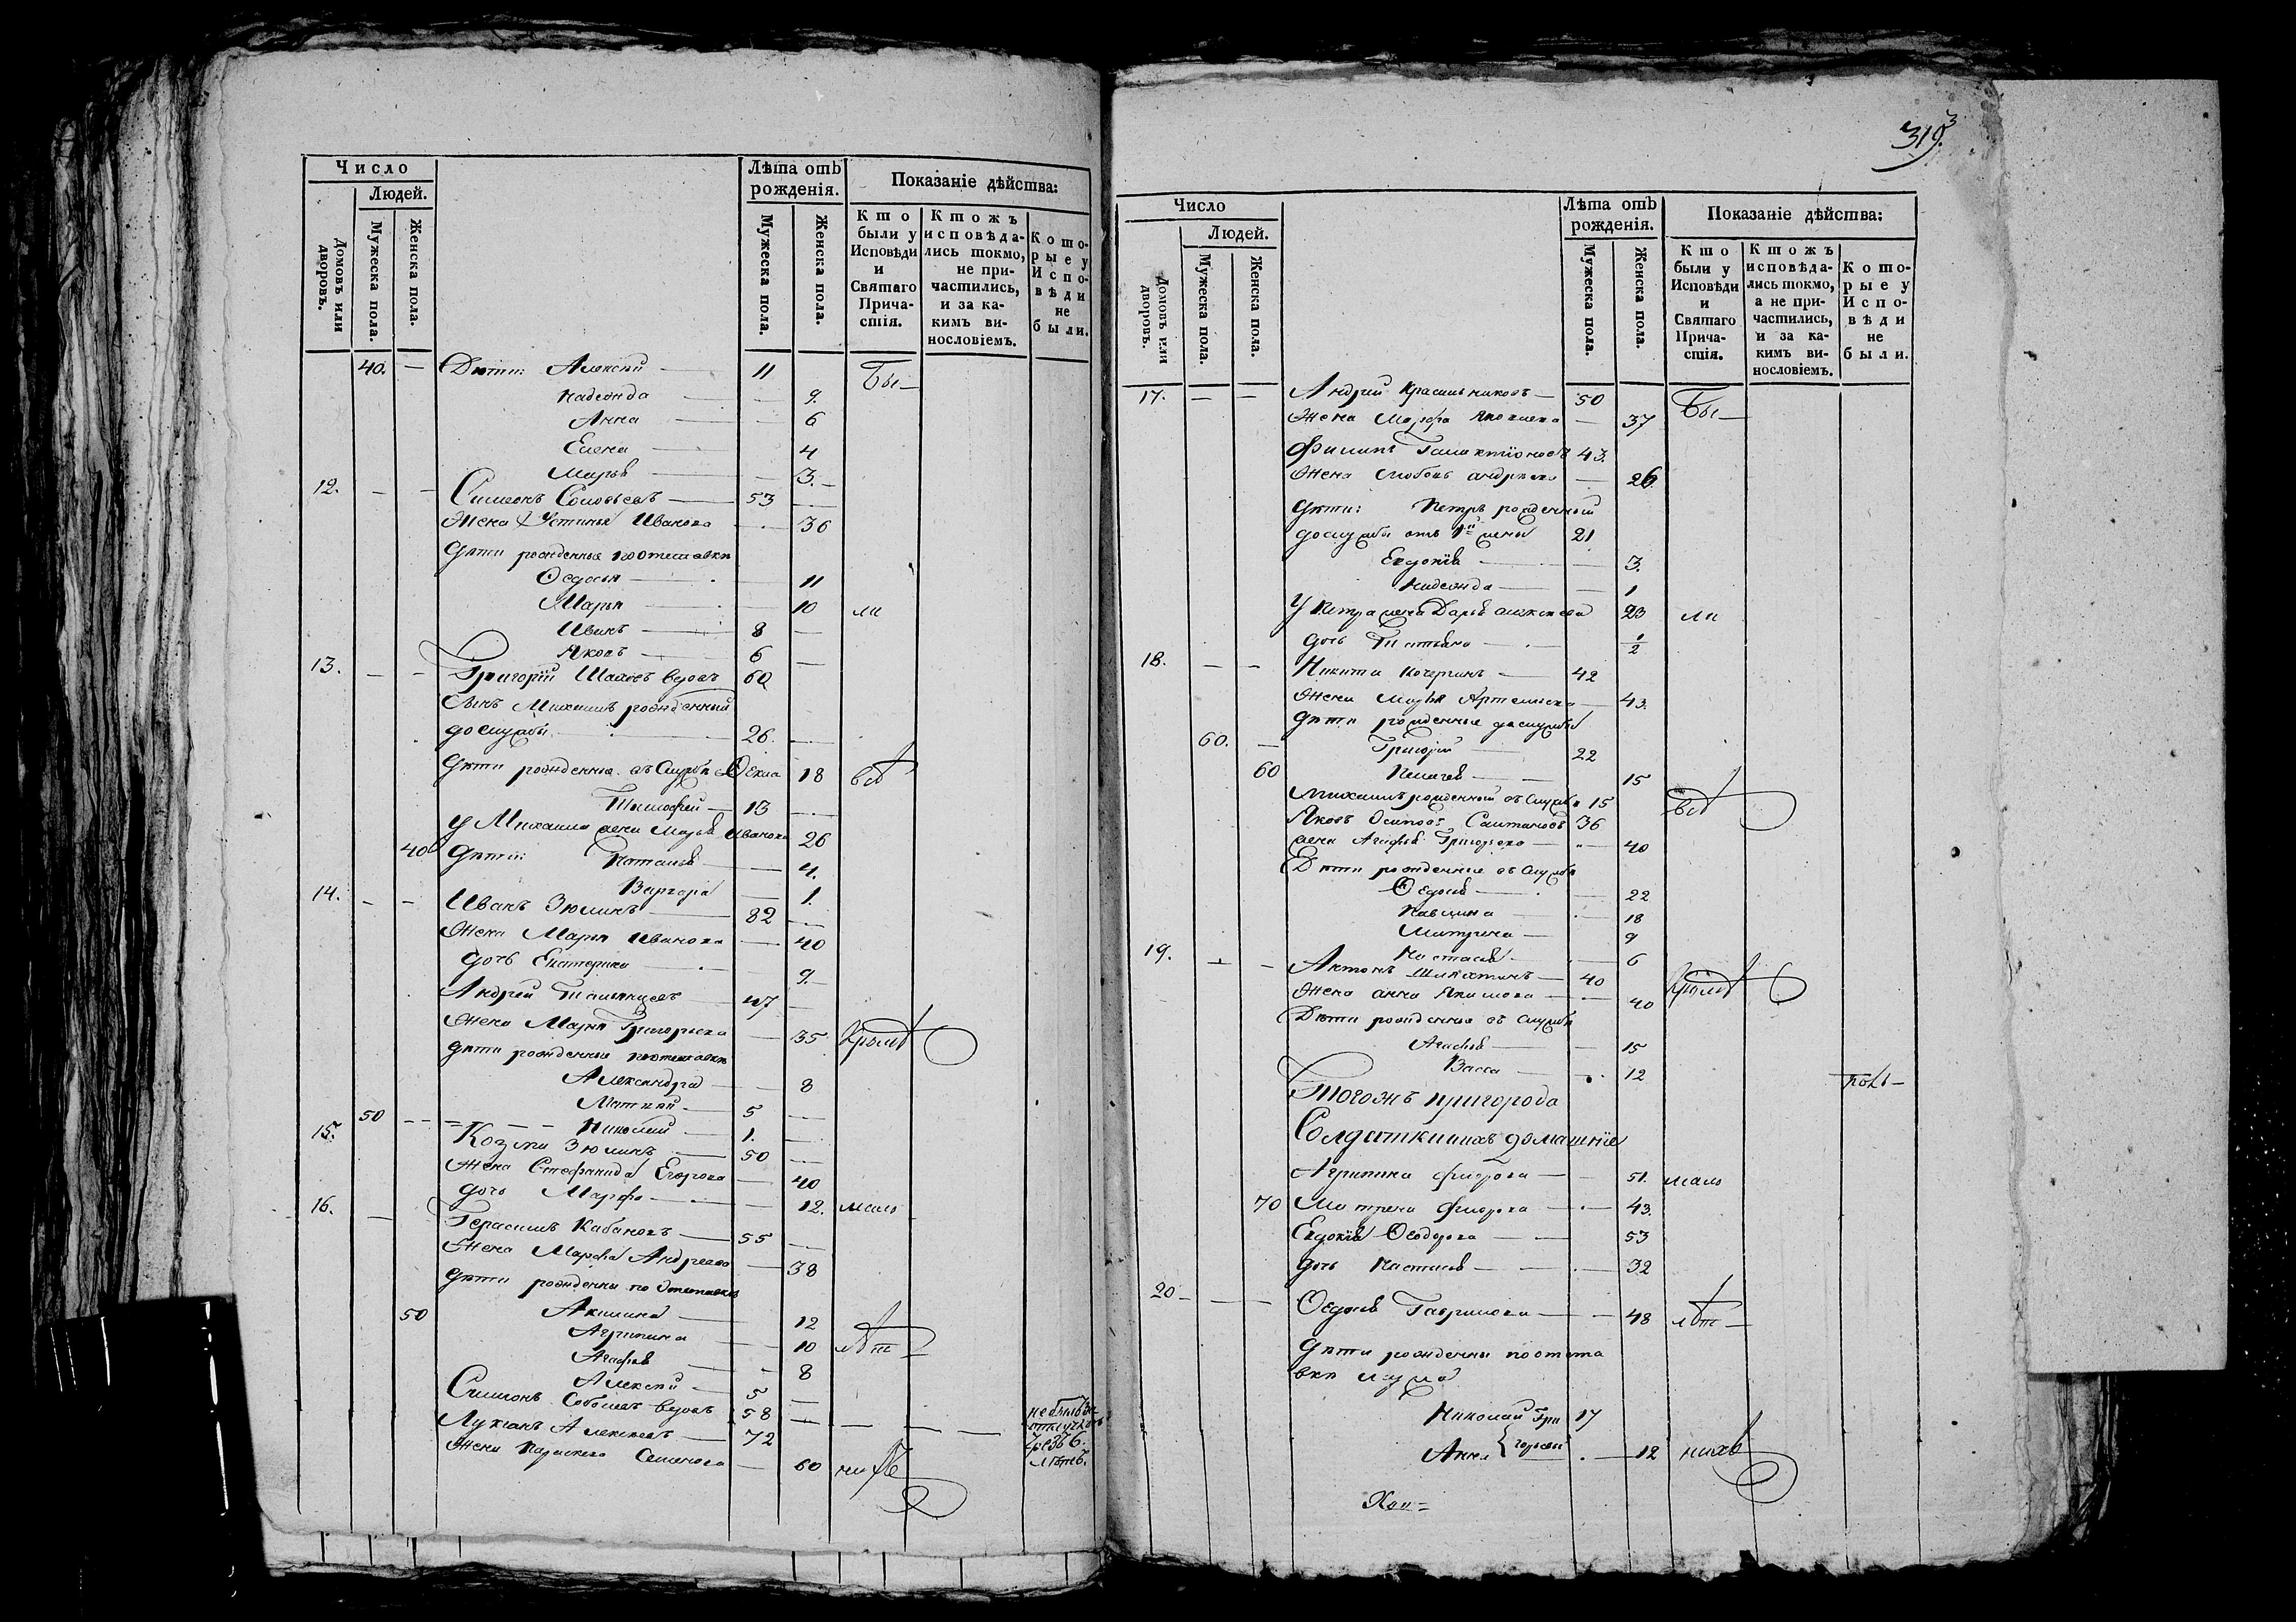 Число
Людей.
Домовъ или дворовъ.
Мужеска пола.
Женска пола.
Лѣта отъ рожденія.
Мужеска пола.
Женска пола.
Показаніе дѣйства:
Кто были у Исповѣди и Святаго Причастія.
Ктожъ исповѣдались токмо, не причастились, и за какимъ винословіемъ.
Которые у Исповѣди не были.
40. — Дѣти: Алексѣй — 11 Бы—
Надежда — 9.
Анна — 6
Елена — 4
Марья — 3.
12. — — Симіонъ Соловьевъ — 53
Жена Устинья Иванова — 36
Дѣти рожденные по отставки
Ѳедосья — 11
Марья — 10 ли
Иванъ — 8 —
Яковъ — 6 —
13. — — Григорій Шаховъ вдовъ 60
Сынъ Михаилъ рожденный
до службы 26.
Дѣти рожденные въ службѣ Ѳекла 18 всѣ
Тимофей — 13
у Михаила жена Марья Иванова 26
40 Дѣти: Наталья — 4.
Варвара — 1.
14. — — Иванъ Зюлинъ — 82
Жена Марья Иванова — 40
дочь Екатерина — 9.
Андрей — 47
Жена Марья Григорьева — 35 кромѣ
дѣти рожденные по отставки
Александра — 8
Матвѣй — 5
50 — — Николай — 1.
15. Козма Зюлинъ — 50
Жена Стефанида Егорова — 40
дочь Марфа — 12. мало
16. — Герасимъ Кабановъ — 55
Жена Марфа Андреева — 38
дѣти рожденны по отставки
50 Акилина — 12
Агрипина — 10 лѣт—
Агафья — 8
Алексѣй — 5
Симіонъ Соболевъ вдовъ 58 — — — не былъ за отлучкою
Лукіанъ Алексѣевъ — 72
Жена Параскева Семенова — 60 нихъ
лѣтъ.
319.
3
Число
Людей.
Домовъ или дворовъ.
Мужеска пола.
Женска пола.
Лѣта отъ рожденія.
Мужеска пола.
Женска пола.
Показаніе дѣйства:
Кто были у Исповѣди и Святаго Причастія.
Ктожъ исповѣдались токмо, а не причастились, и за какимъ винословіемъ.
Которые у Исповѣди не были.
17. — — Андрей Красильниковъ — 50 Бы—
Жена Марфа Яковлева — 37
Филипъ Галактіоновъ 43.
Жена Любовь Андреева — 26
Дѣти: Петръ рожденный
до службы отъ 1й жены 21
Евдокія — 3.
Надежда — 1
У Петра жена Дарья Алексеева 23 ли
дочь Татьяна — 1/2
18. — — Никита Кочергинъ — 42
Жена Марья Артемьева — 43.
Дѣти рожденные до службы
60. — Григорій 22
60 Пелагея — 15
Михаилъ рожденный въ службѣ 15 всѣ
Яковъ Осиповъ Салтановъ 36
жена Агафья Григорьева — 40
Дѣти рожденные въ службѣ
Ѳедосья — 22
Павлина — 18
Матрена — 9
Настасья — 6
19. — — Антонъ — 40 кромѣ
Жена Анна Якимова — 40
Дѣти рожденные въ службѣ
Агафья — 15
Васса — 12
Тогожъ пригорода
Солдатки и ихъ домашніе
Агрипина Фиорова — 51. мало
70 Матрена Фиорова — 43.
Евдокія Ѳеодорова — 53
Дочь Настасья — 32
20 — — Ѳедосья Гаврилова — 48 лѣт—
Дѣти рожденны по отста
вки мужа
Николай Гри 17
Анна горьевы — 12 нихъ